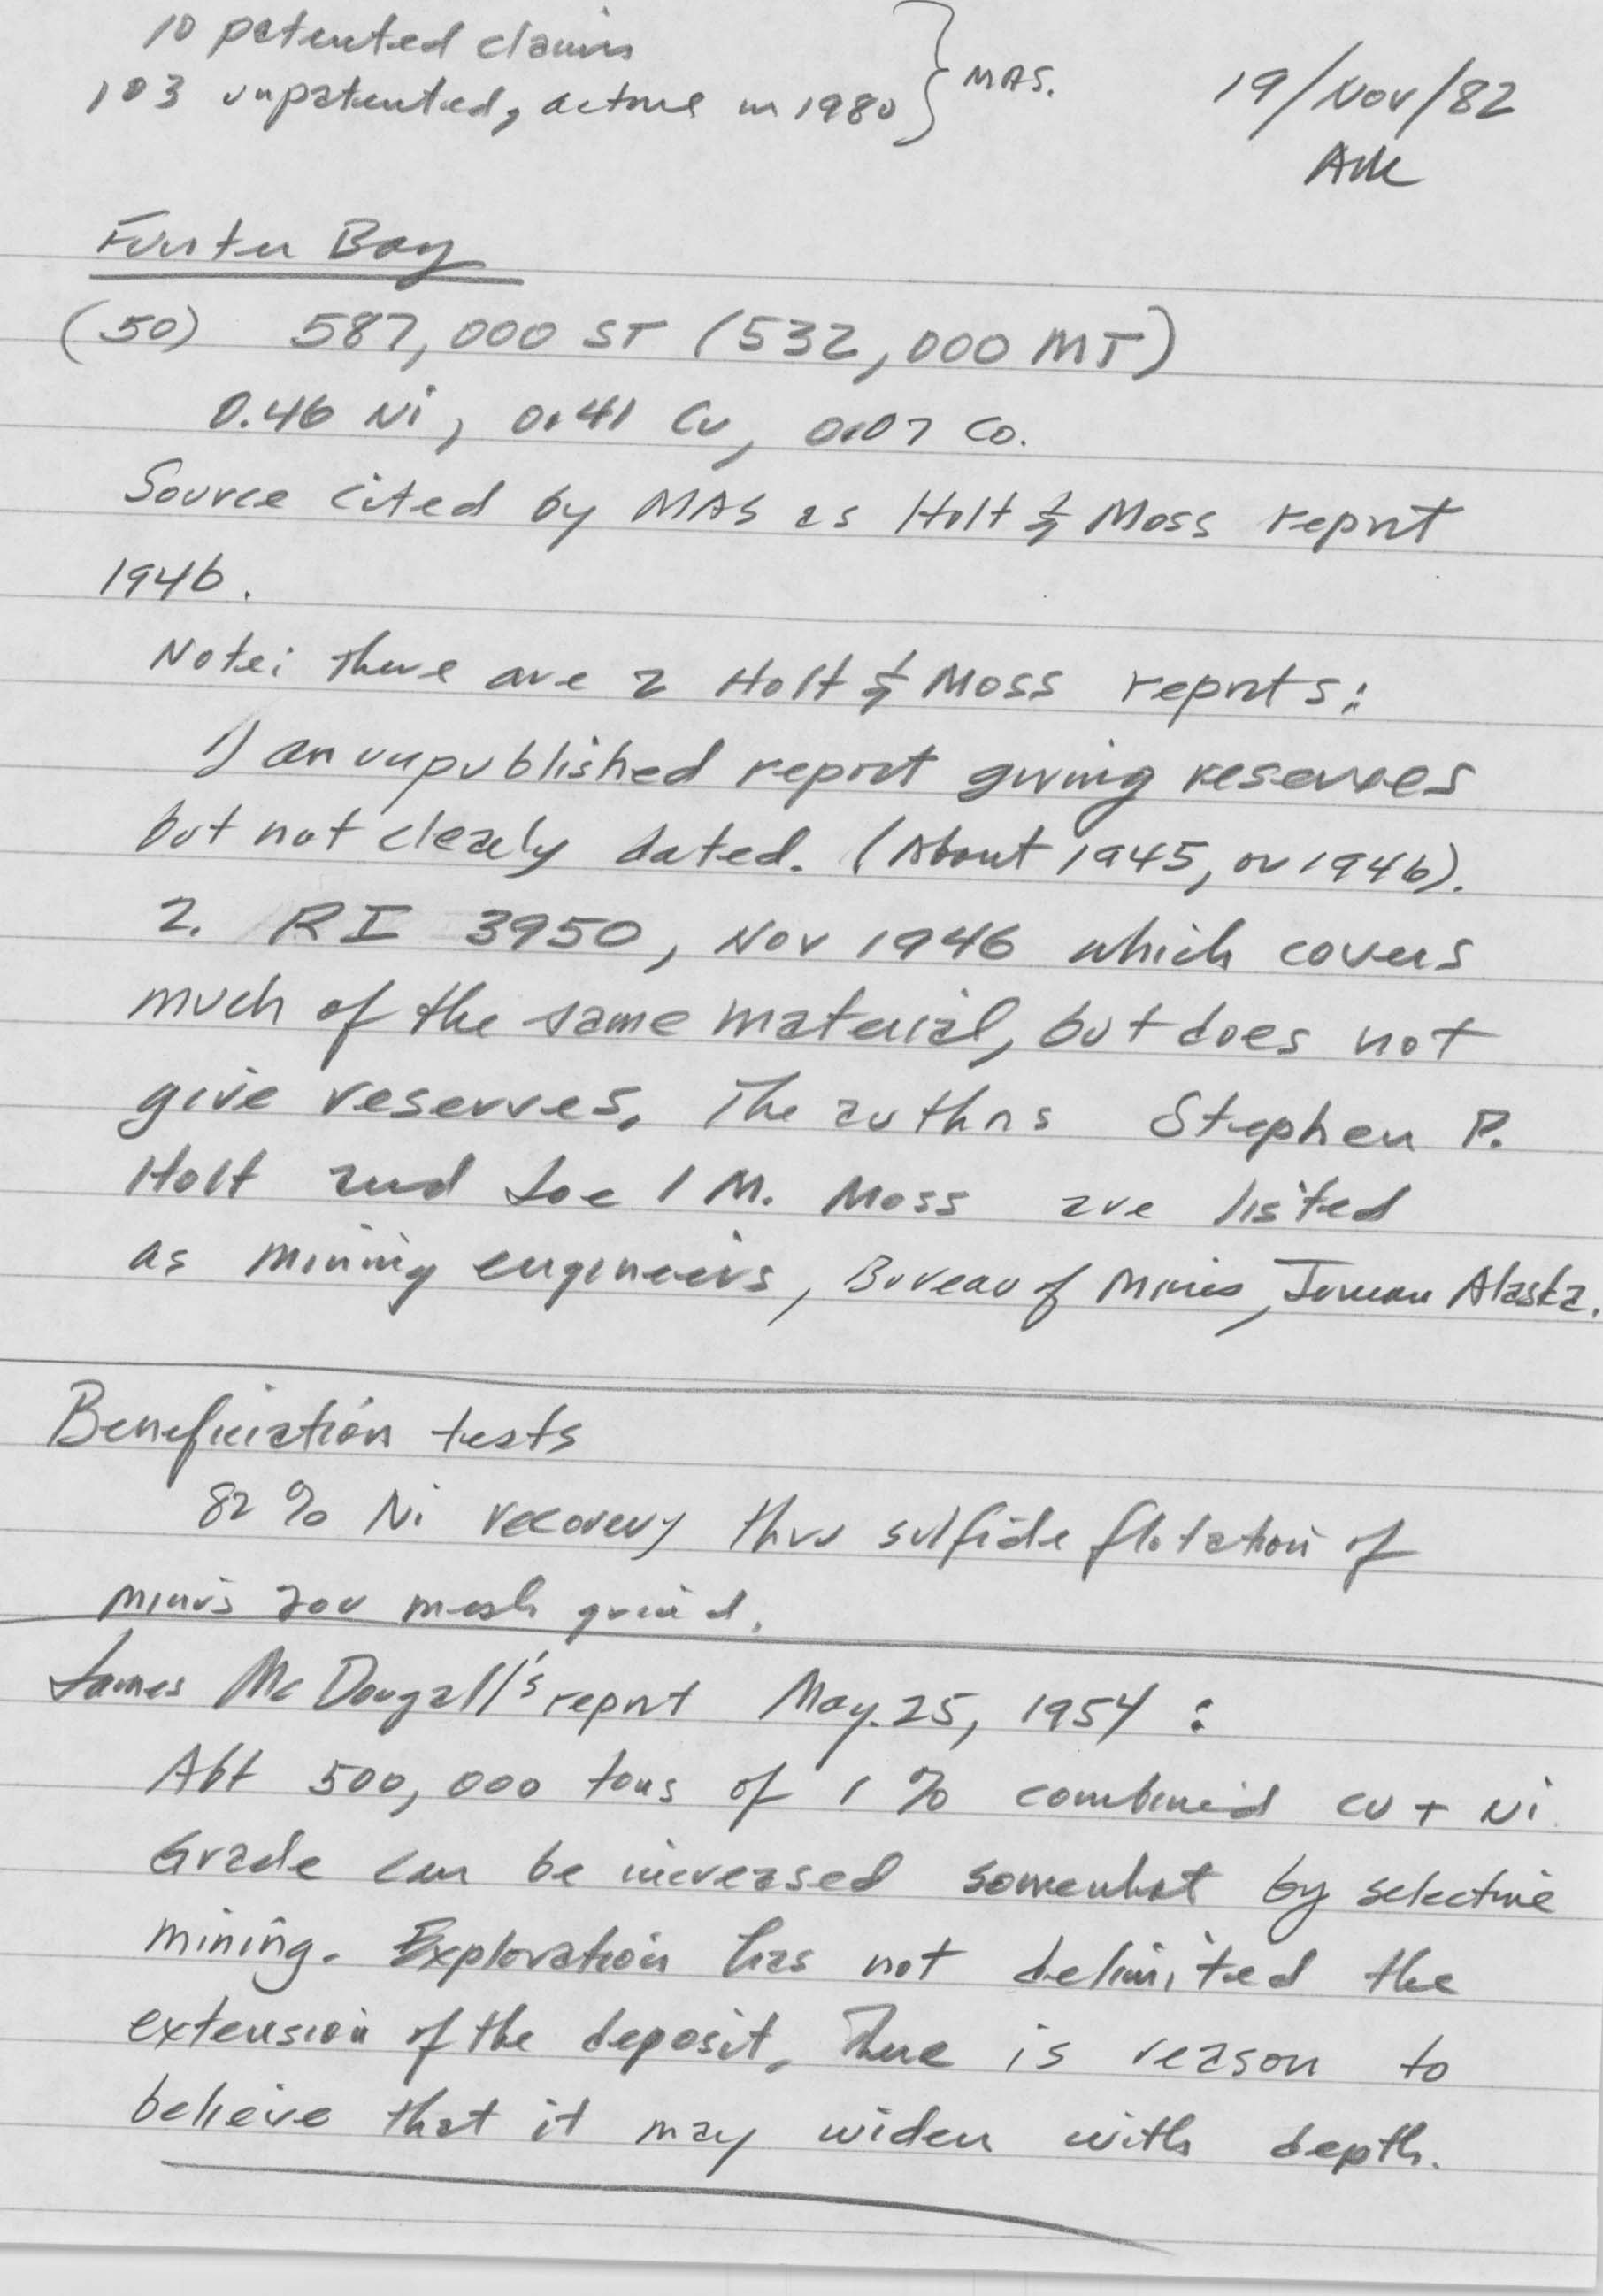 10 patented claims
103 unpatented, active in 1980 } MAS.
19/Nov/82
AWC
Funter Bay
(50) 587,000 ST (532,000 MT)
0.46 Ni, 0.41 Cu, 0.07 Co.
Source cited by MAS as Holt & Moss report
1946.
Note: There are 2 Holt & Moss reports:
1) an unpublished report giving reserves
but not clearly dated. (About 1945, or 1946).
2. RI 3950, Nov 1946 which covers
much of the same material, but does not
give reserves. The authors Stephen P.
Holt and Joe M. Moss are listed
as mining engineers, Bureau of Mines, Juneau Alaska.
Beneficiation tests
82% Ni recovery thru sulfide flotation of
minus 200 mesh grind.
James McDougall's report May. 25, 1954 :
Abt 500,000 tons of 1% combined Cu + Ni
Grade can be increased somewhat by selective
mining. Exploration has not delimited the
extension of the deposit. There is reason to
believe that it may widen with depth.